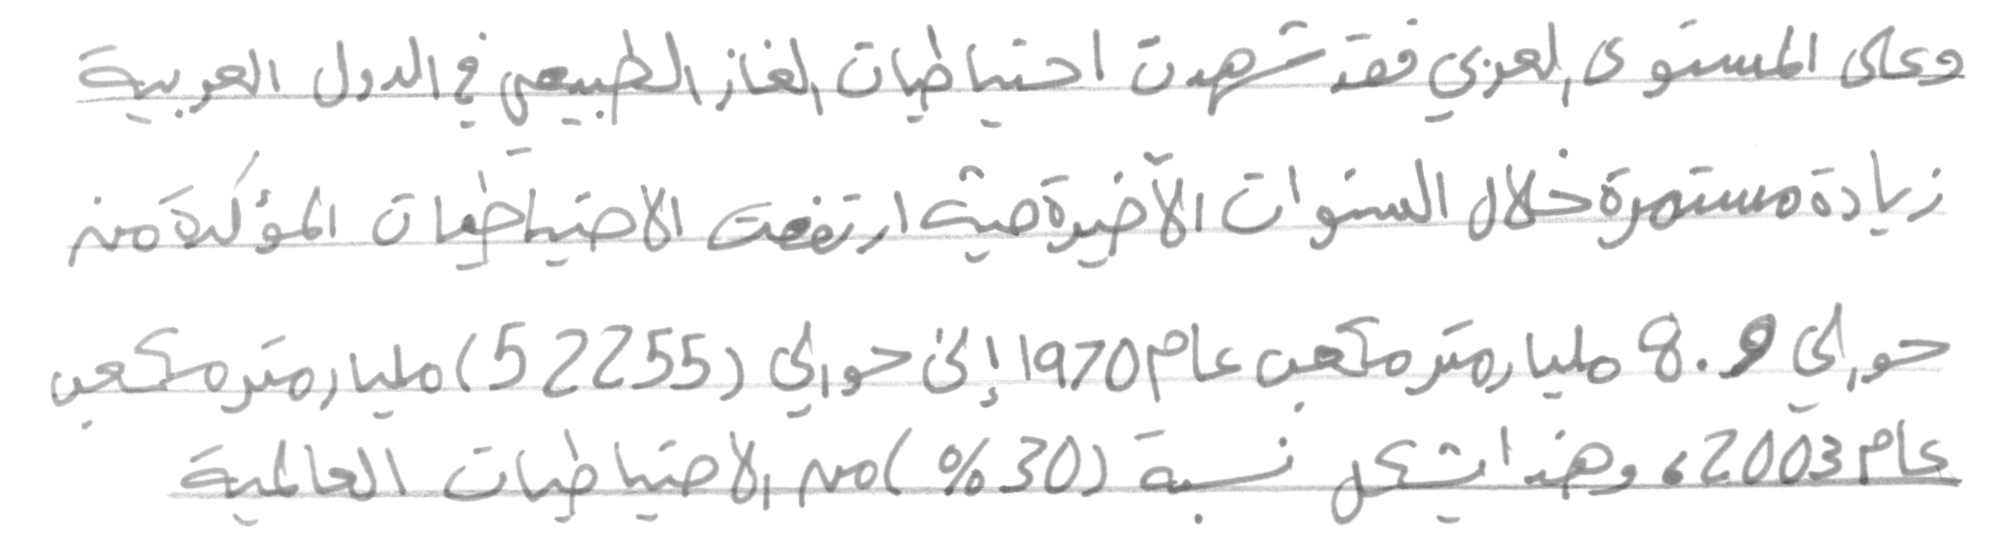 وعلى المستوى العربي فقد شهدت احتياطيات الغاز الطبيعي في الدول العربية
زيادة مستمرة خلال السنوات الأخيرة حيث ارتفعت الاحتياطيات المؤكدة من
حوالي 8.9 مليار متر مكعب عام 1970 إلى حوالي (52255) مليار متر مكعب
عام 2003، وهذا يشكل نسبة (30%) من الاحتياطيات العالمية